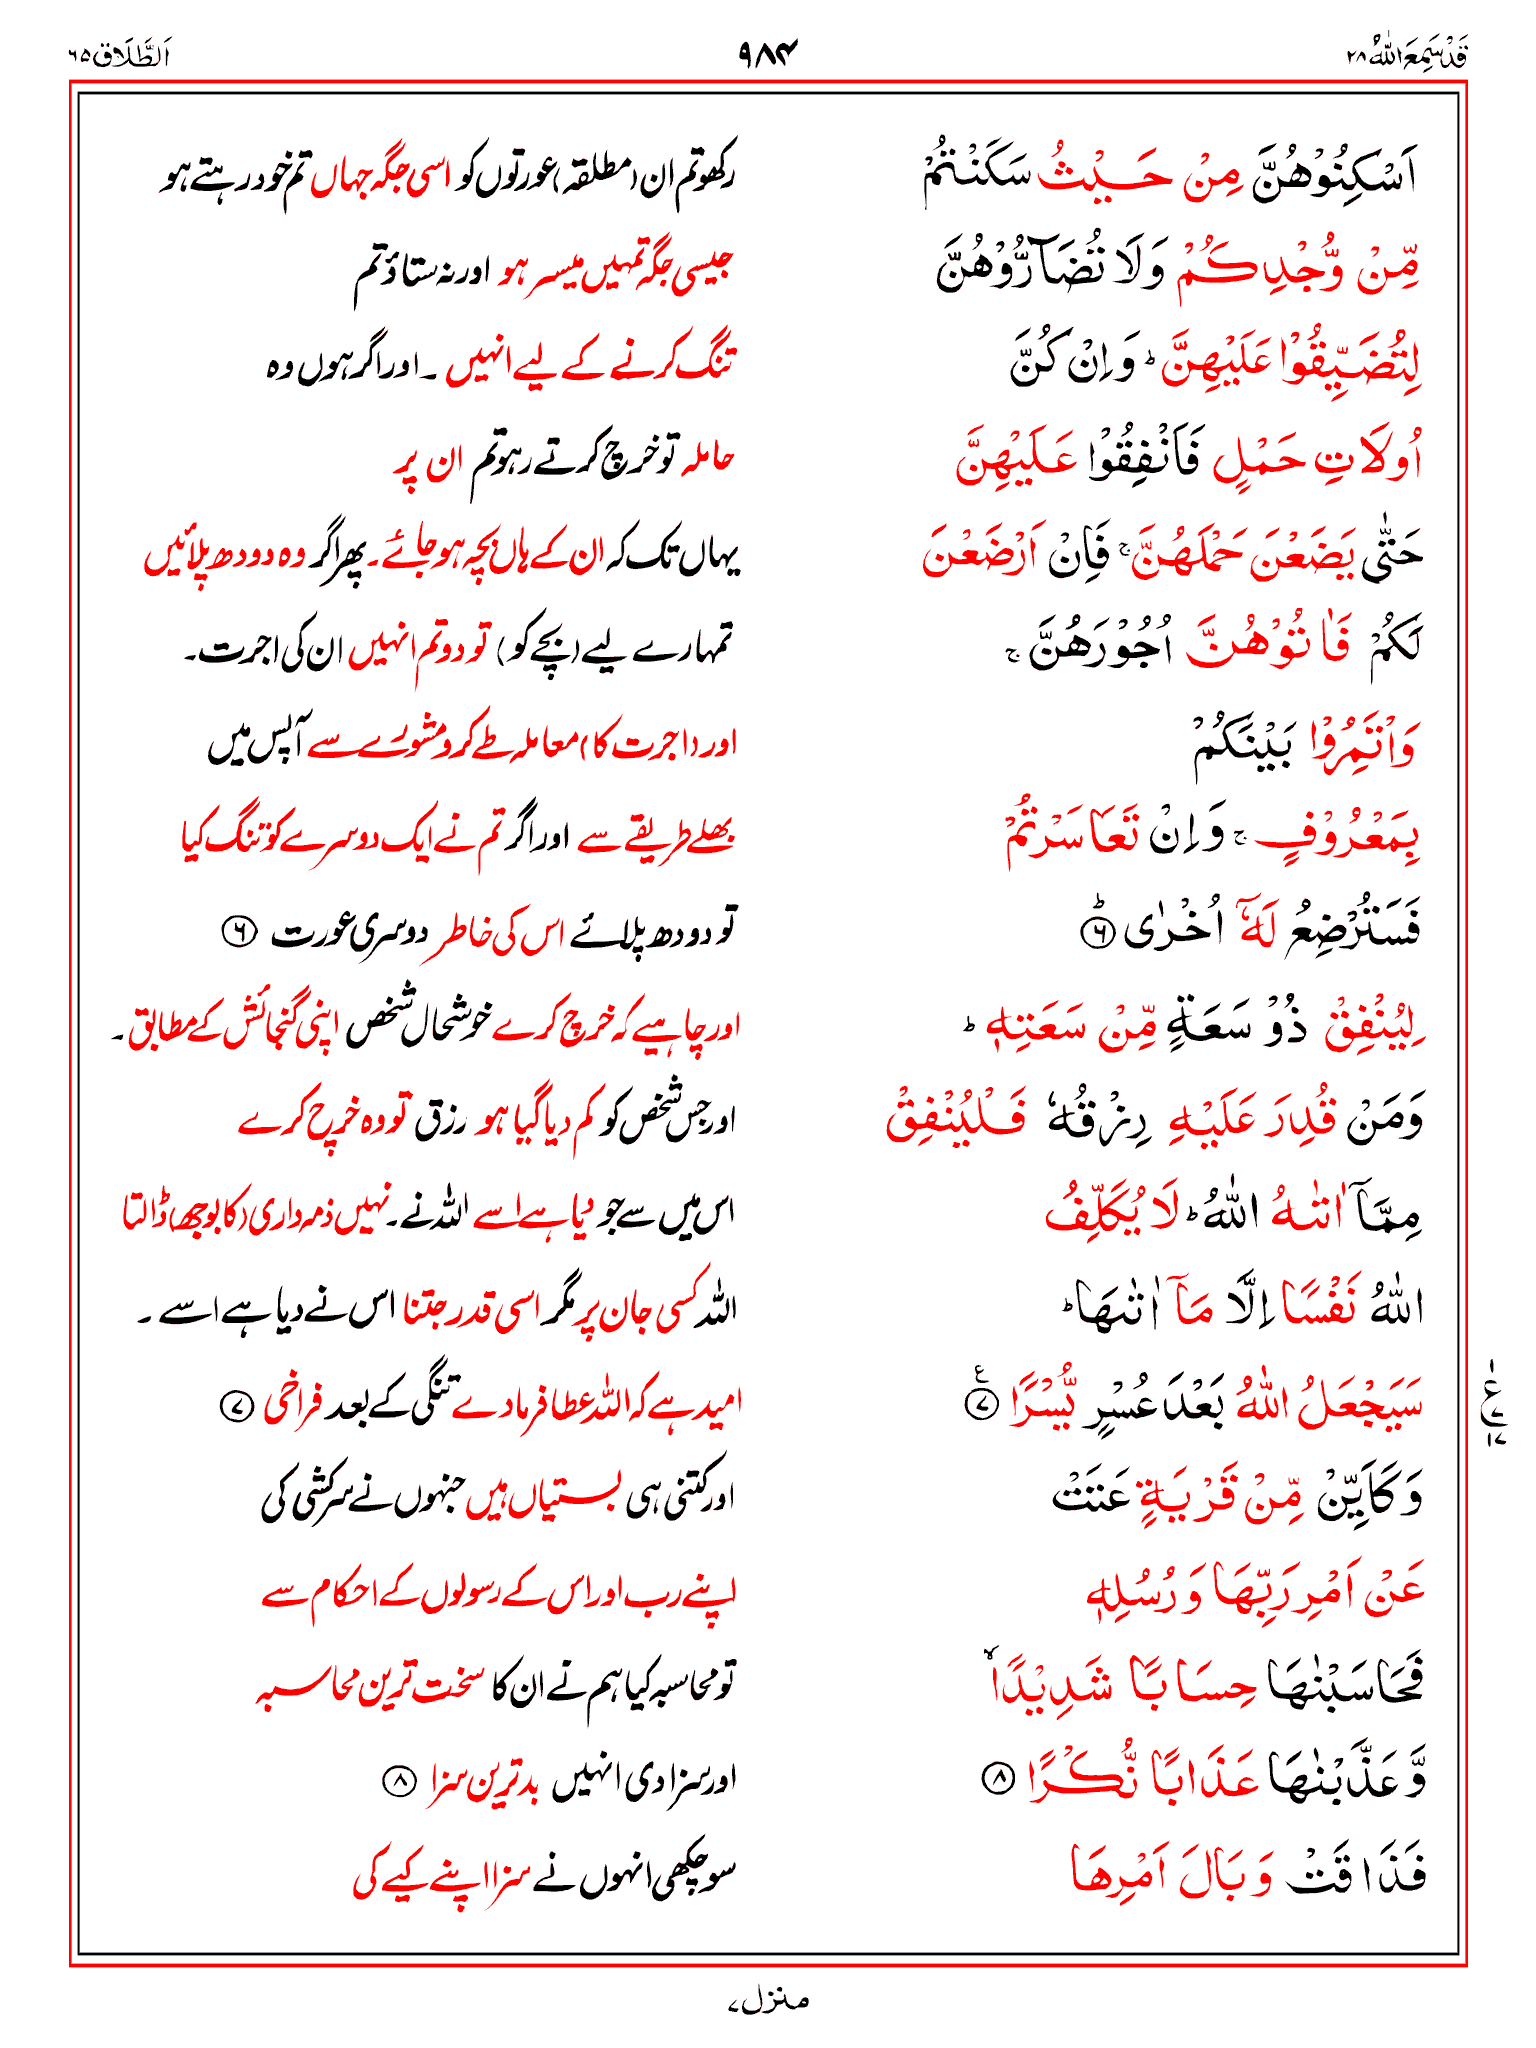 قَدْ سَمِعَ اللّٰهُ ۲۸
۹۸۴
اَلطَّلَاق ۶۵
اَسْكِنُوْهُنَّ مِنْ حَيْثُ سَكَنْتُمْ رکھو تم ان (مطلقہ) عورتوں کو اسی جگہ جہاں تم خود رہتے ہو
مِّنْ وُّجْدِكُمْ وَلَا تُضَآرُّوْهُنَّ جیسی جگہ تمہیں میسر ہو اور نہ ستاؤ تم
لِتُضَيِّقُوْا عَلَيْهِنَّ ؕ وَاِنْ كُنَّ تنگ کرنے کے لیے انہیں ۔ اور اگر ہوں وہ
اُولَاتِ حَمْلٍ فَاَنْفِقُوْا عَلَيْهِنَّ حاملہ تو خرچ کرتے رہو تم ان پر
حَتّٰى يَضَعْنَ حَمْلَهُنَّ ۚ فَاِنْ اَرْضَعْنَ یہاں تک کہ ان کے ہاں بچہ ہو جائے ۔ پھر اگر وہ دودھ پلائیں
لَكُمْ فَاٰتُوْهُنَّ اُجُوْرَهُنَّ ۚ تمہارے لیے (بچے کو) تو دو تم انہیں ان کی اجرت ۔
وَاْتَمِرُوْا بَيْنَكُمْ اور (اجرت کا) معاملہ طے کرو مشورے سے آپس میں
بِمَعْرُوْفٍ ۚ وَاِنْ تَعَاسَرْتُمْ بھلے طریقے سے اور اگر تم نے ایک دوسرے کو تنگ کیا
فَسَتُرْضِعُ لَهٗٓ اُخْرٰى ؕ ﴿۶﴾ تو دودھ پلائے اس کی خاطر دوسری عورت ﴿۶﴾
لِيُنْفِقْ ذُوْ سَعَةٍ مِّنْ سَعَتِهٖ ؕ اور چاہیے کہ خرچ کرے خوشحال شخص اپنی گنجائش کے مطابق ۔
وَمَنْ قُدِرَ عَلَيْهِ رِزْقُهٗ فَلْيُنْفِقْ اور جس شخص کو کم دیا گیا ہو رزق تو وہ خرچ کرے
مِمَّآ اٰتٰىهُ اللّٰهُ ؕ لَا يُكَلِّفُ اس میں سے جو دیا ہے اسے اللہ نے ۔ نہیں ذمہ داری (کا بوجھ) ڈالتا
اللّٰهُ نَفْسًا اِلَّا مَآ اٰتٰىهَا ؕ اللہ کسی جان پر مگر اسی قدر جتنا اس نے دیا ہے اسے ۔
سَيَجْعَلُ اللّٰهُ بَعْدَ عُسْرٍ يُّسْرًا ﴿۷﴾ ع امید ہے کہ اللہ عطا فرما دے تنگی کے بعد فراخی ﴿۷﴾
ع ۷ ۱۷
وَكَاَيِّنْ مِّنْ قَرْيَةٍ عَتَتْ اور کتنی ہی بستیاں ہیں جنہوں نے سرکشی کی
عَنْ اَمْرِ رَبِّهَا وَرُسُلِهٖ اپنے رب اور اس کے رسولوں کے احکام سے
فَحَاسَبْنٰهَا حِسَابًا شَدِيْدًا ۙ تو محاسبہ کیا ہم نے ان کا سخت ترین محاسبہ
وَّعَذَّبْنٰهَا عَذَابًا نُّكْرًا ﴿۸﴾ اور سزا دی انہیں بدترین سزا ﴿۸﴾
فَذَاقَتْ وَبَالَ اَمْرِهَا سو چکھی انہوں نے سزا اپنے کیے کی
منزل ۷